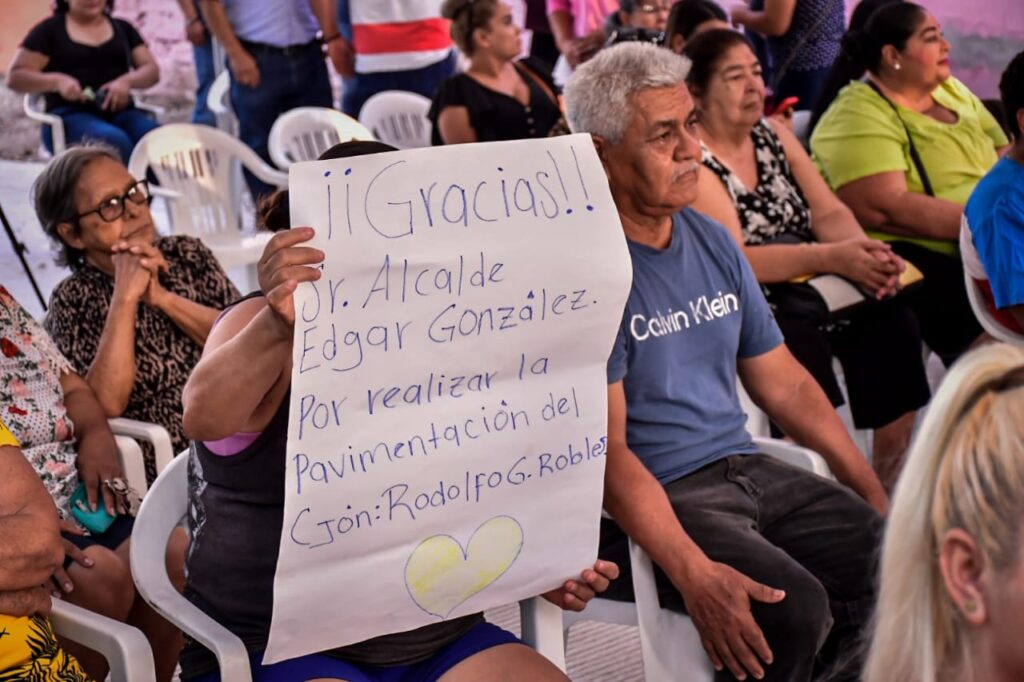 ¡¡Gracias!!
Sr. Alcalde
Edgar González.
Por realizar la
Pavimentación del
Cjón: Rodolfo G. Robles
Calvin Klein